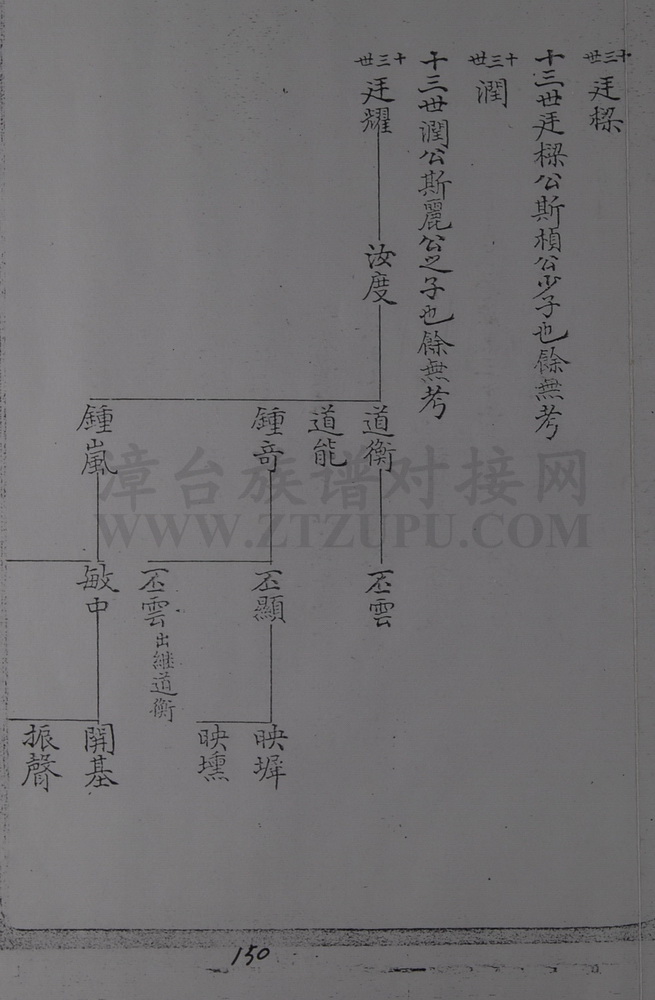 十三世
廷樑
十三世廷樑公斯楨公少子也餘無考
十三世
潤
十三世潤公斯麗公之子也餘無考
十三世
廷耀
汝度
道衡
道能
鍾奇
鍾嵐
丕雲
丕顯
丕雲出繼道衡
敏中
映墀
映壎
開基
振聲
漳台族谱对接网
WWW.ZTZUPU.COM
150